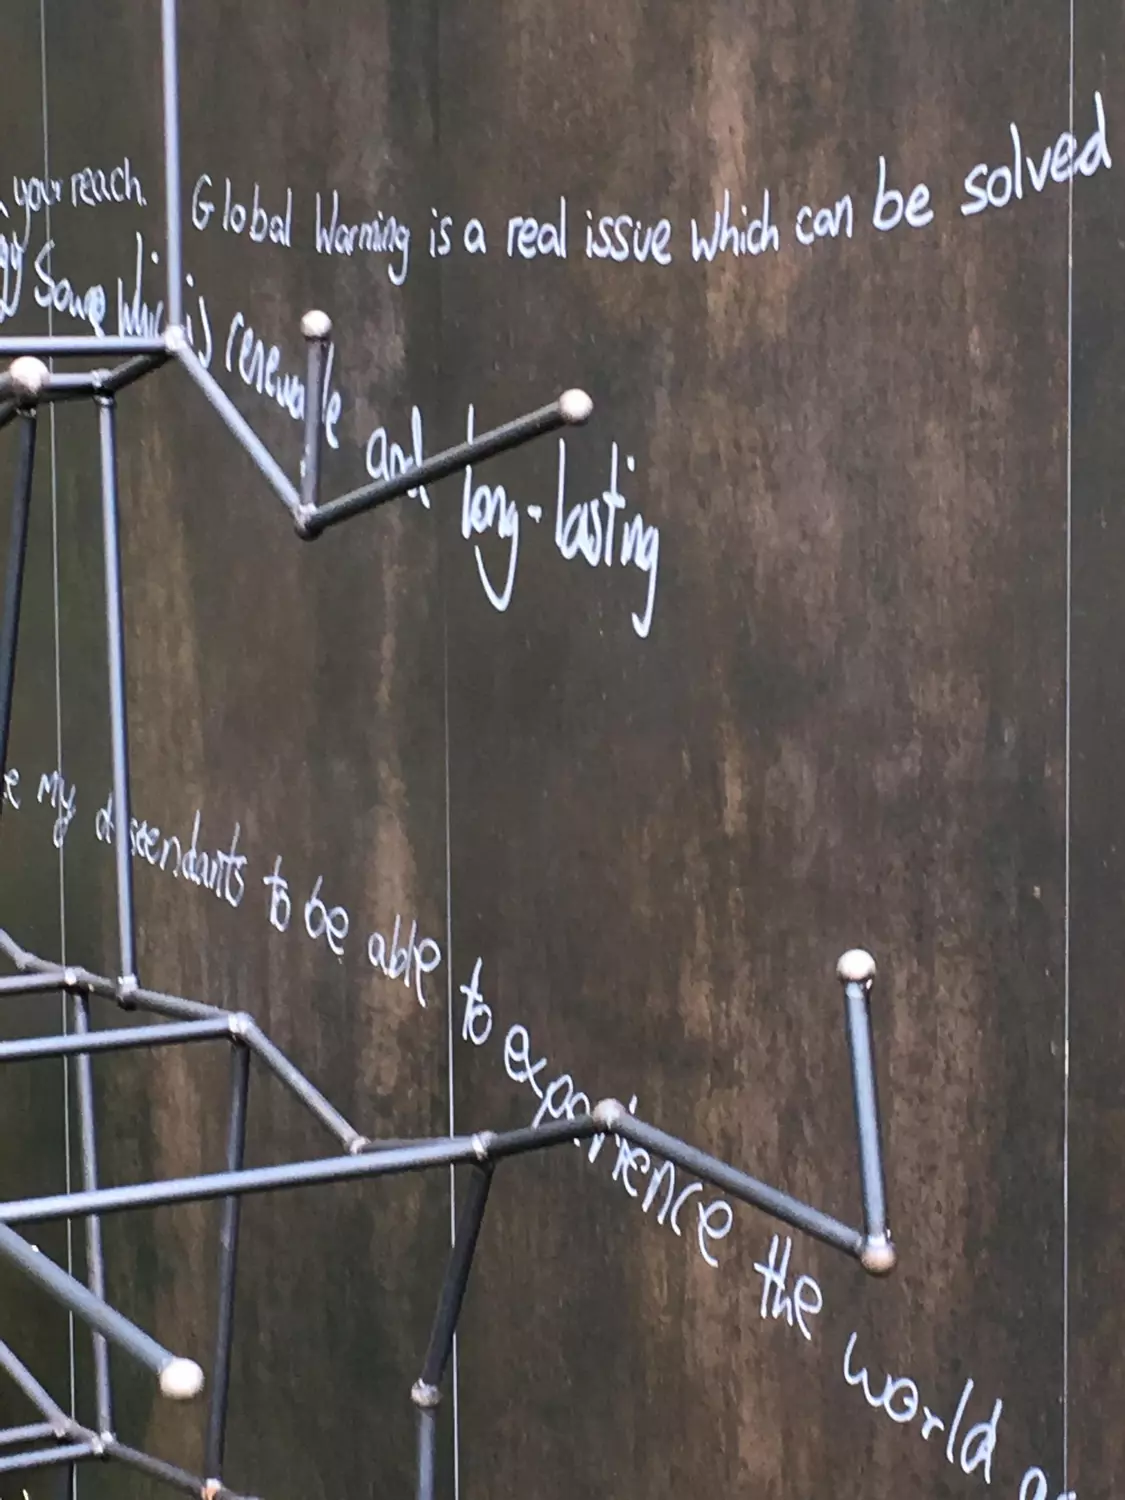 your reach. Global Warming is a real issue which can be solved
Source which is renewable and long-lasting
my descendants to be able to experience the world